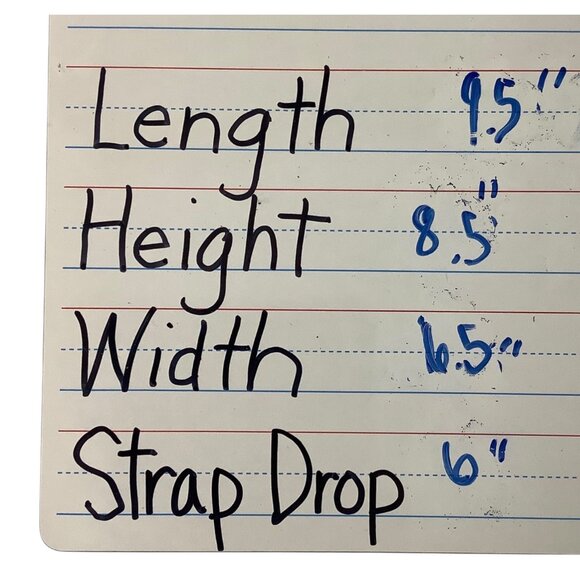 Length 9.5"
Height 8.5"
Width 6.5"
Strap Drop 6"